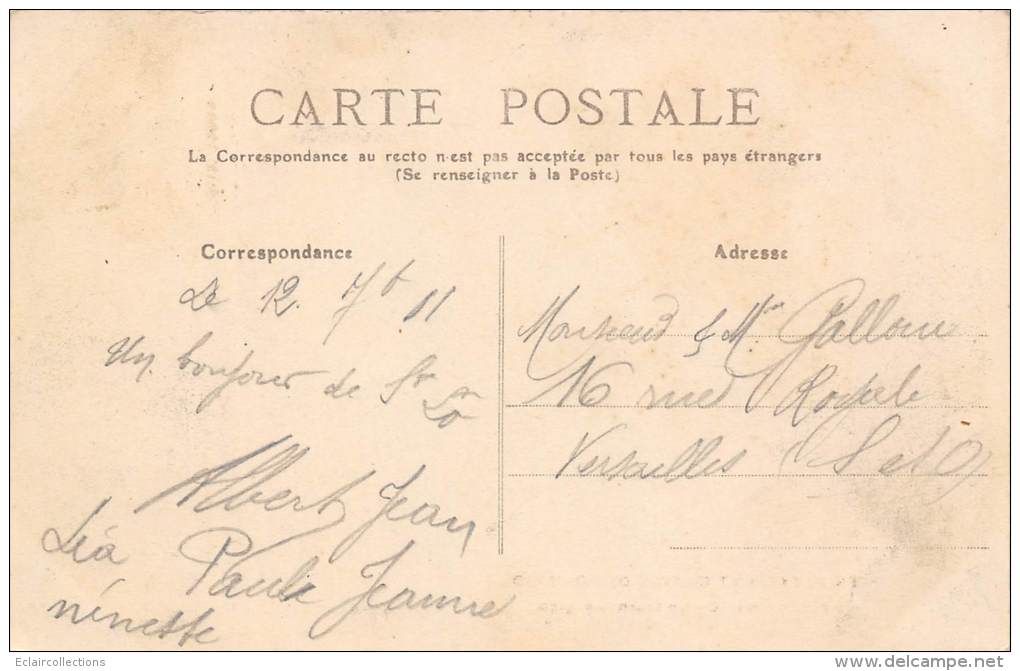 CARTE POSTALE
La Correspondance au recto n'est pas acceptée par tous les pays étrangers
(Se renseigner à la Poste)
Correspondance
Le 12. 7bʳ 11
Un bonjour de St Lo
Albert Jean
Léa Paule Jeanne
ninette
Adresse
Monsieur & Mme Galloux
16 rue Royale
Versailles (S et O)
Eclaircollections
delcampe.net